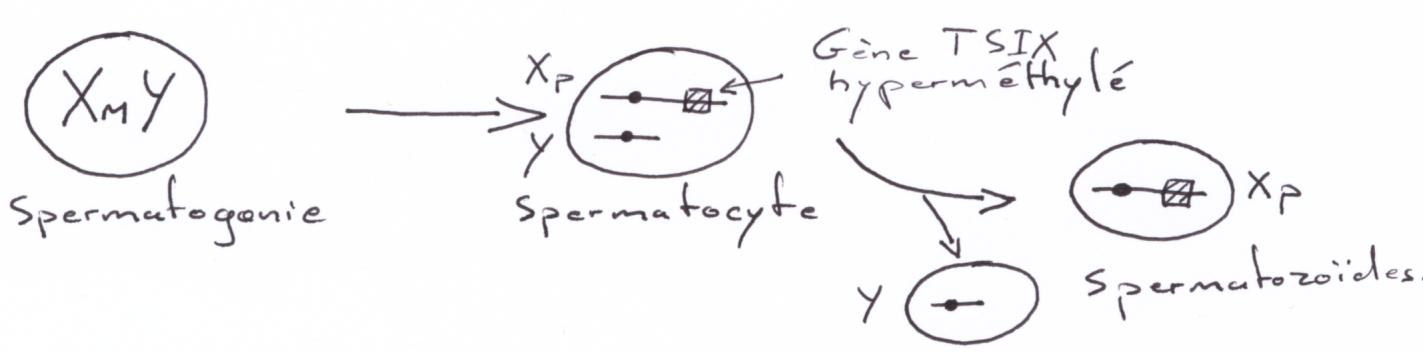 XMY
Spermatogonie
XP
Y
Spermatocyte
Gène TSIX
hyperméthylé
XP
Y
Spermatozoïdes.